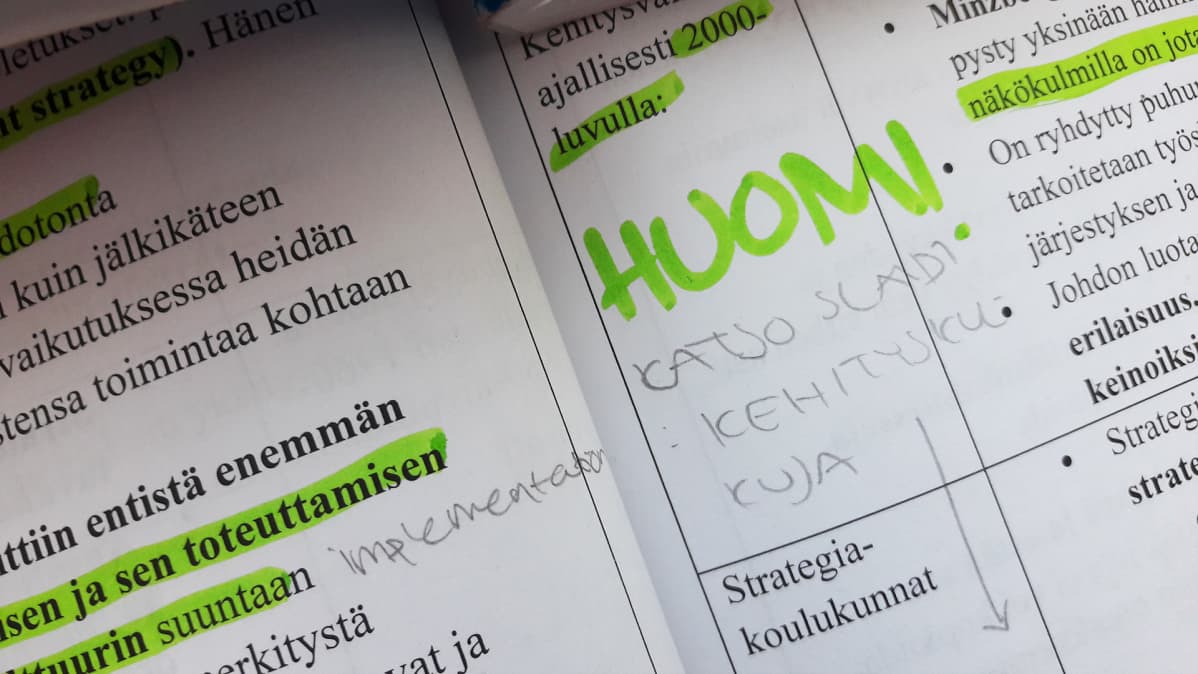 t strategy). Hänen
dotonta
kuin jälkikäteen
vaikutuksessa heidän
tensa toimintaa kohtaan
ttiin entistä enemmän
isen ja sen toteuttamisen
ttuurin suuntaan
implementation
erkitystä
vat ja
Kehitysva
ajallisesti 2000-
luvulla:
HUOM!
KATSO SLAIDI
: KEHITYSKU-
KUJA
Strategia-
koulukunnat
• Minzbe
pysty yksinään hall
näkökulmilla on jota
• On ryhdytty puhu
tarkoitetaan työs
järjestyksen ja
• Johdon luota
erilaisuus.
keinoiksi
• Strategi
strate